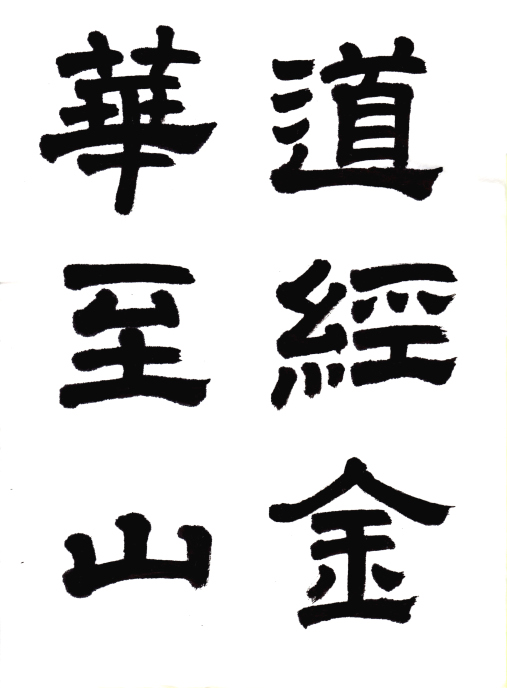 道經金
華至山